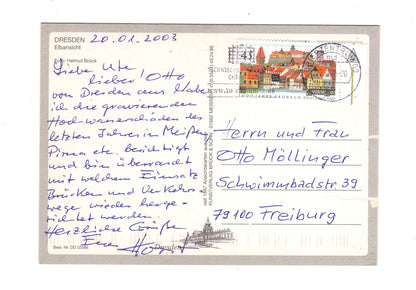 DRESDEN
Elbansicht
Foto: Helmut Brück
20.01.2003
Liebe Ute
lieber Otto
von Dresden aus habe
ich die gravierenden
Hochwasserschäden des
letzten Jahres in Meißen,
Pirna etc. besichtigt
und bin überrascht
mit welchem Einsatz
Brücken und Verkehrs-
wege wieder herge-
richtet werden
Herzliche Grüße
Euer Horst
Best.-Nr. DD
Dresden
45
Herrn und Frau
Otto Möllinger
Schwimmbadstr 39
79100 Freiburg